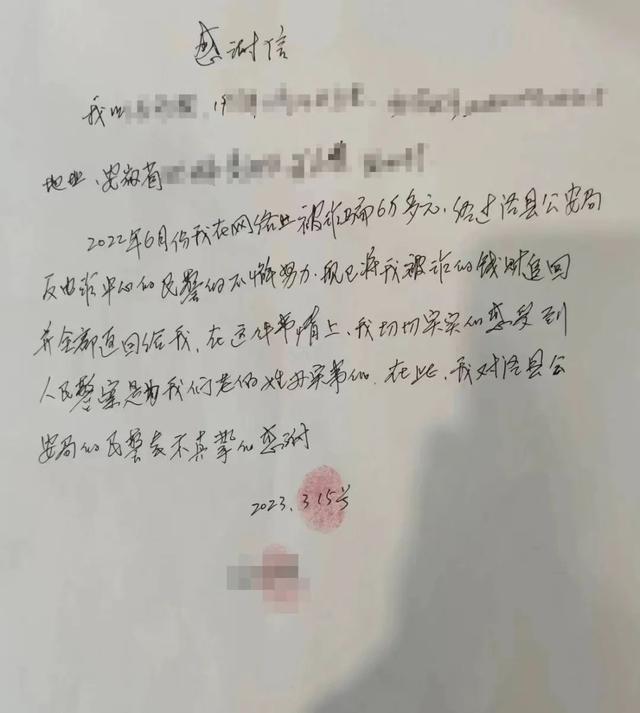 感谢信
我叫
地址：安徽省
2022年6月份我在网络上被诈骗6万多元，经过泾县公安局
反电诈中心的民警的不懈努力，现已将我被诈的钱财追回
并全部返回给我，在这件事情上，我切切实实的感受到
人民警察是为我们老百姓办实事的，在此，我对泾县公
安局的民警表示真挚的感谢
2023.3.15号